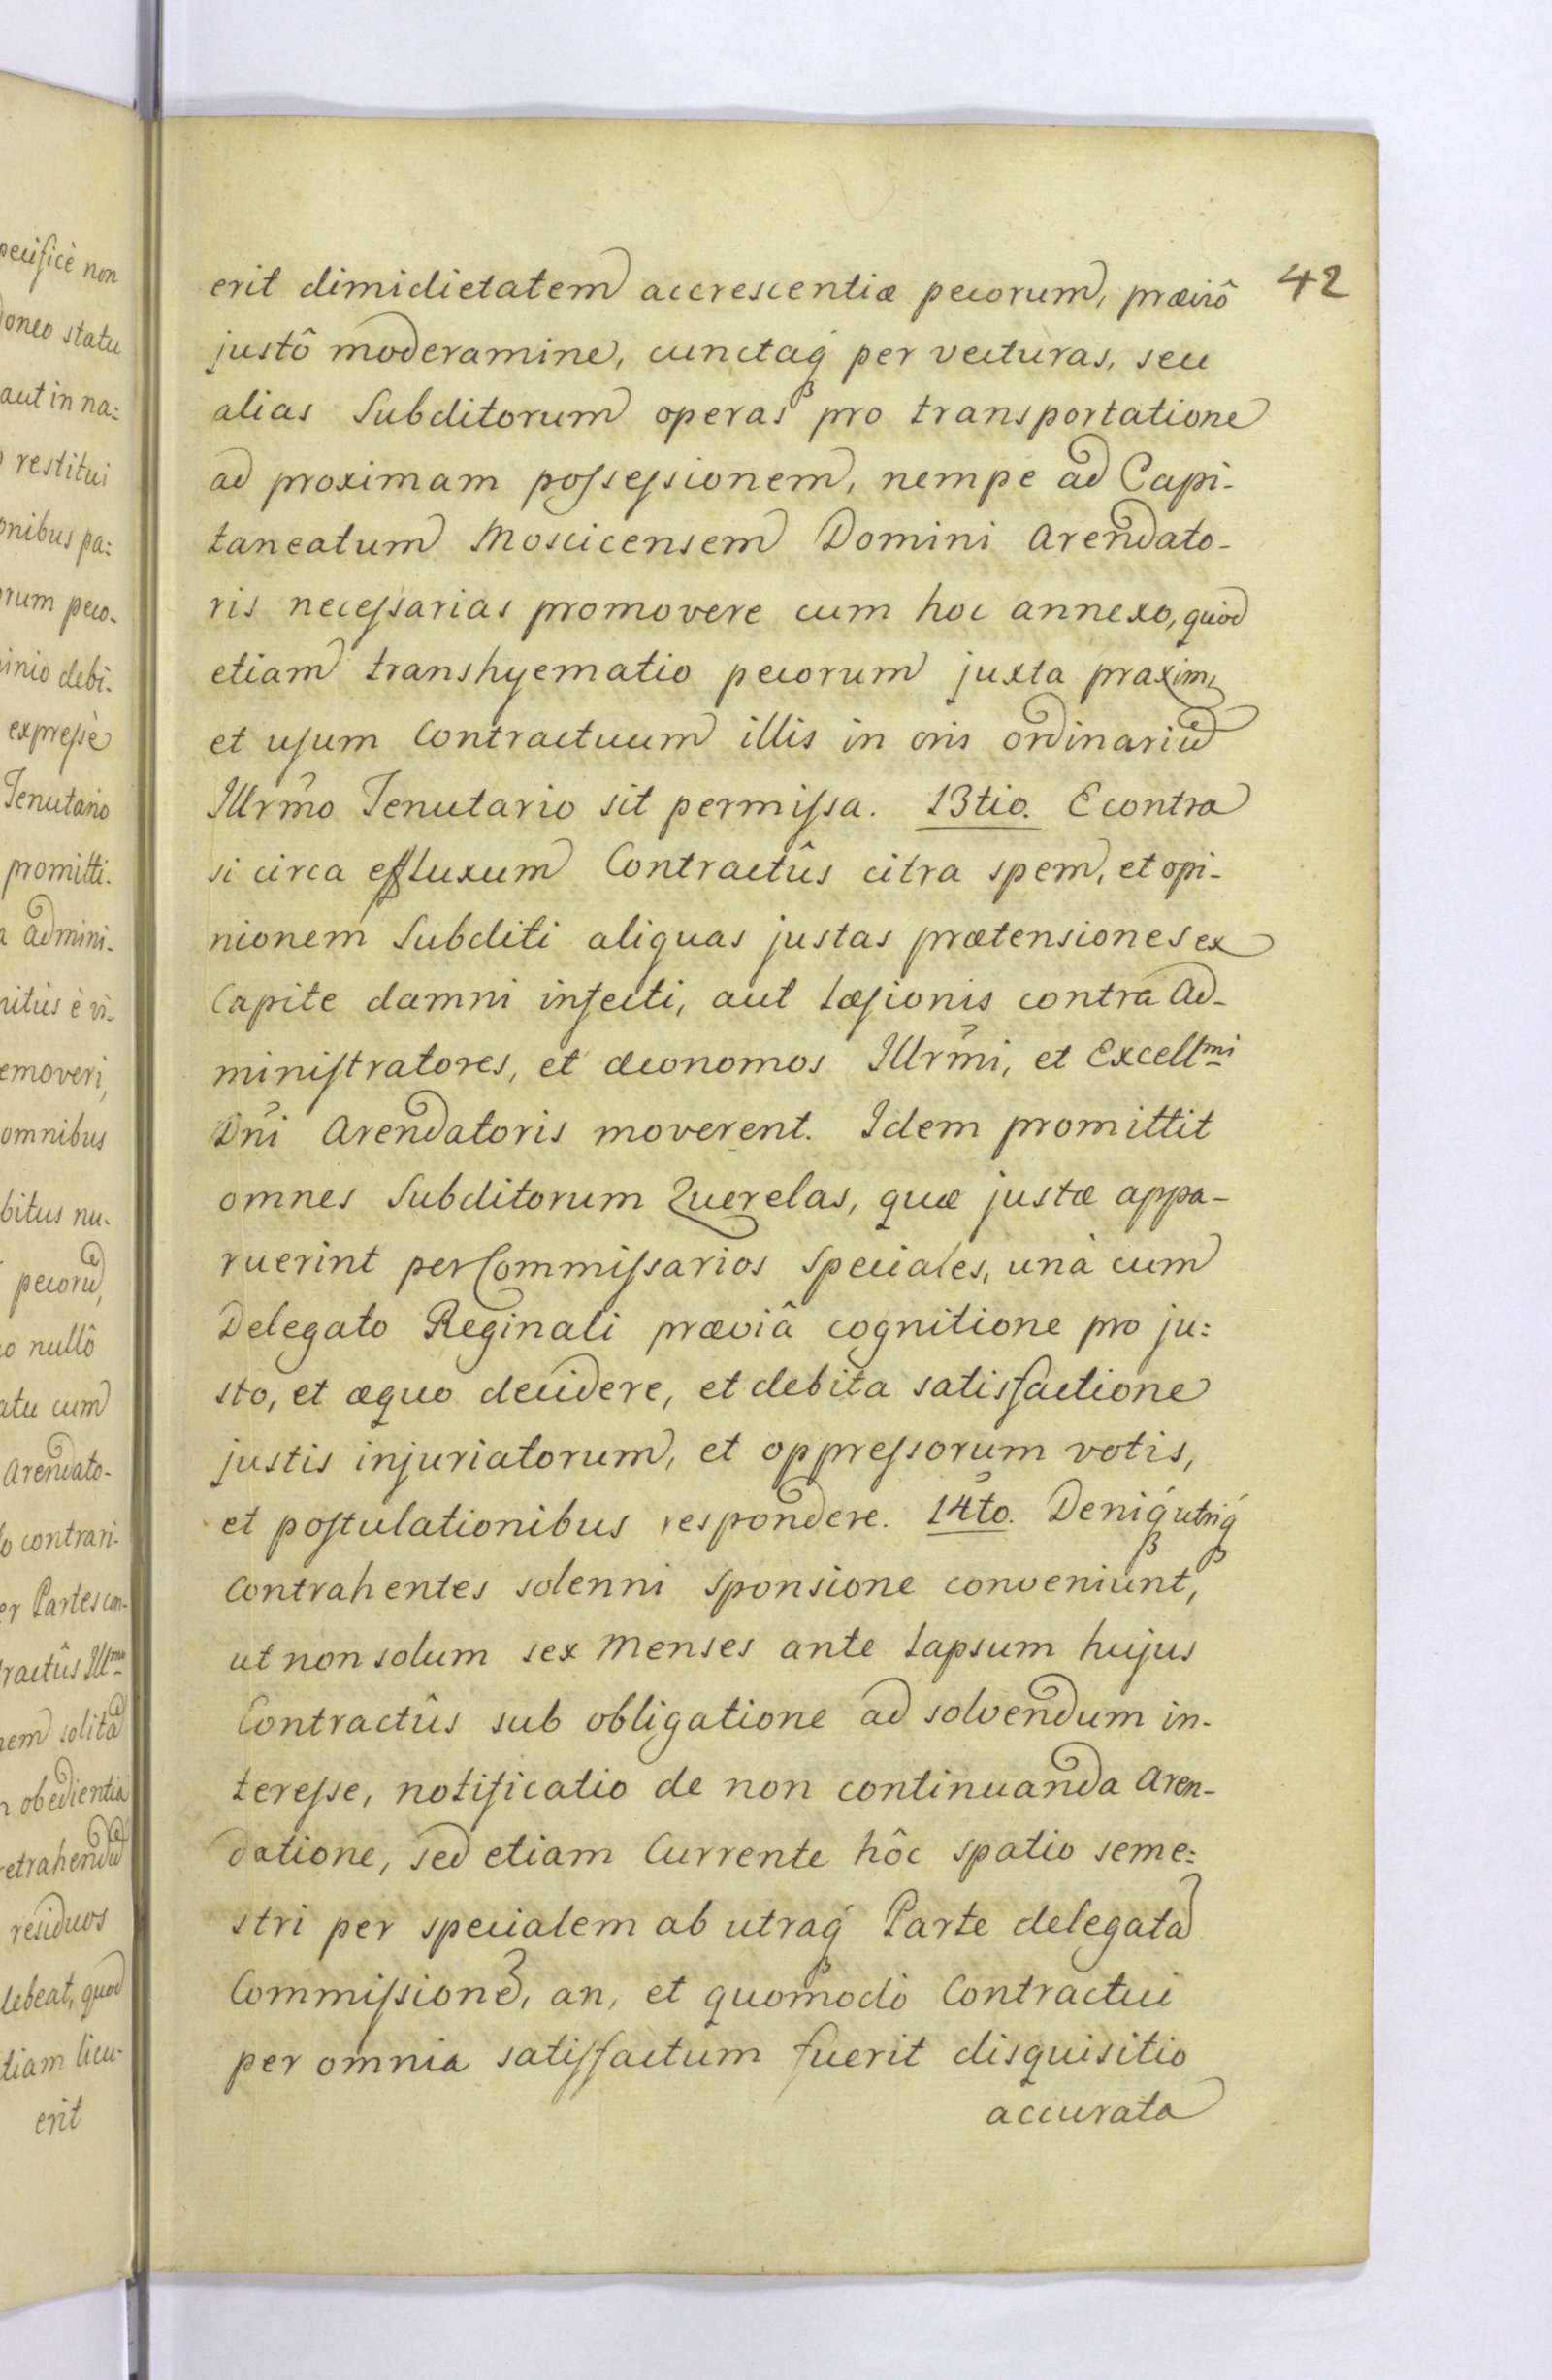 42
erit dimidietatem accrescentiæ pecorum, præviô
justô moderamine, cunctaq́ per vecturas, seu
alias Subditorum operas pro transportatione
ad proximam possessionem, nempe ad Capi-
taneatum Moscicensem Domini Arendato-
ris necessarias promovere cum hoc annexo, quod
etiam transhyematio pecorum juxta praxim,
et usum Contractuum illis in oris ordinariũ
Illrm̃o Tenutario sit permissa. 13tio. E contra
si circa effluxum Contractûs citra spem, et opi-
nionem Subditi aliquas justas prætensiones ex
Capite damni infecti, aut læsionis contra Ad-
ministratores, et œconomos Illrm̃i, et Excellmi
Dn̄i Arendatoris moverent. Idem promittit
omnes Subditorum Querelas, quæ justæ appa-
ruerint per Commissarios Speciales, unà cum
Delegato Reginali præviâ cognitione pro ju:
sto, et æquo decidere, et debita satisfactione
justis injuriatorum, et oppressorum votis,
et postulationibus respondere. 14to. Deniq́ utriq́
Contrahentes solenni Sponsione conveniunt,
ut non solum sex Menses ante Lapsum hujus
Contractûs sub obligatione ad solvendum in-
teresse, notificatio de non continuanda Aren-
datione, sed etiam Currente hôc spatio seme:
stri per specialem ab utraq́ Parte delegatã
Commissionẽ, an, et quomodò Contractui
per omnia satisfactum fuerit disquisitio
accurata
pecificè non
doneo statu
aut in na:
restitui
onibus pa:
orum peco-
inio debi-
expressè
Tenutario
promitti-
admini-
nitùs è vi-
emoveri,
omnibus
bitus nu-
pecorũ,
o nullô
atu cum
Arendato-
o contrari-
er Partes con-
ractûs Illmo
nem solitã
obedientia
etrahendũ
residuos
debeat, quod
tiam licu-
erit